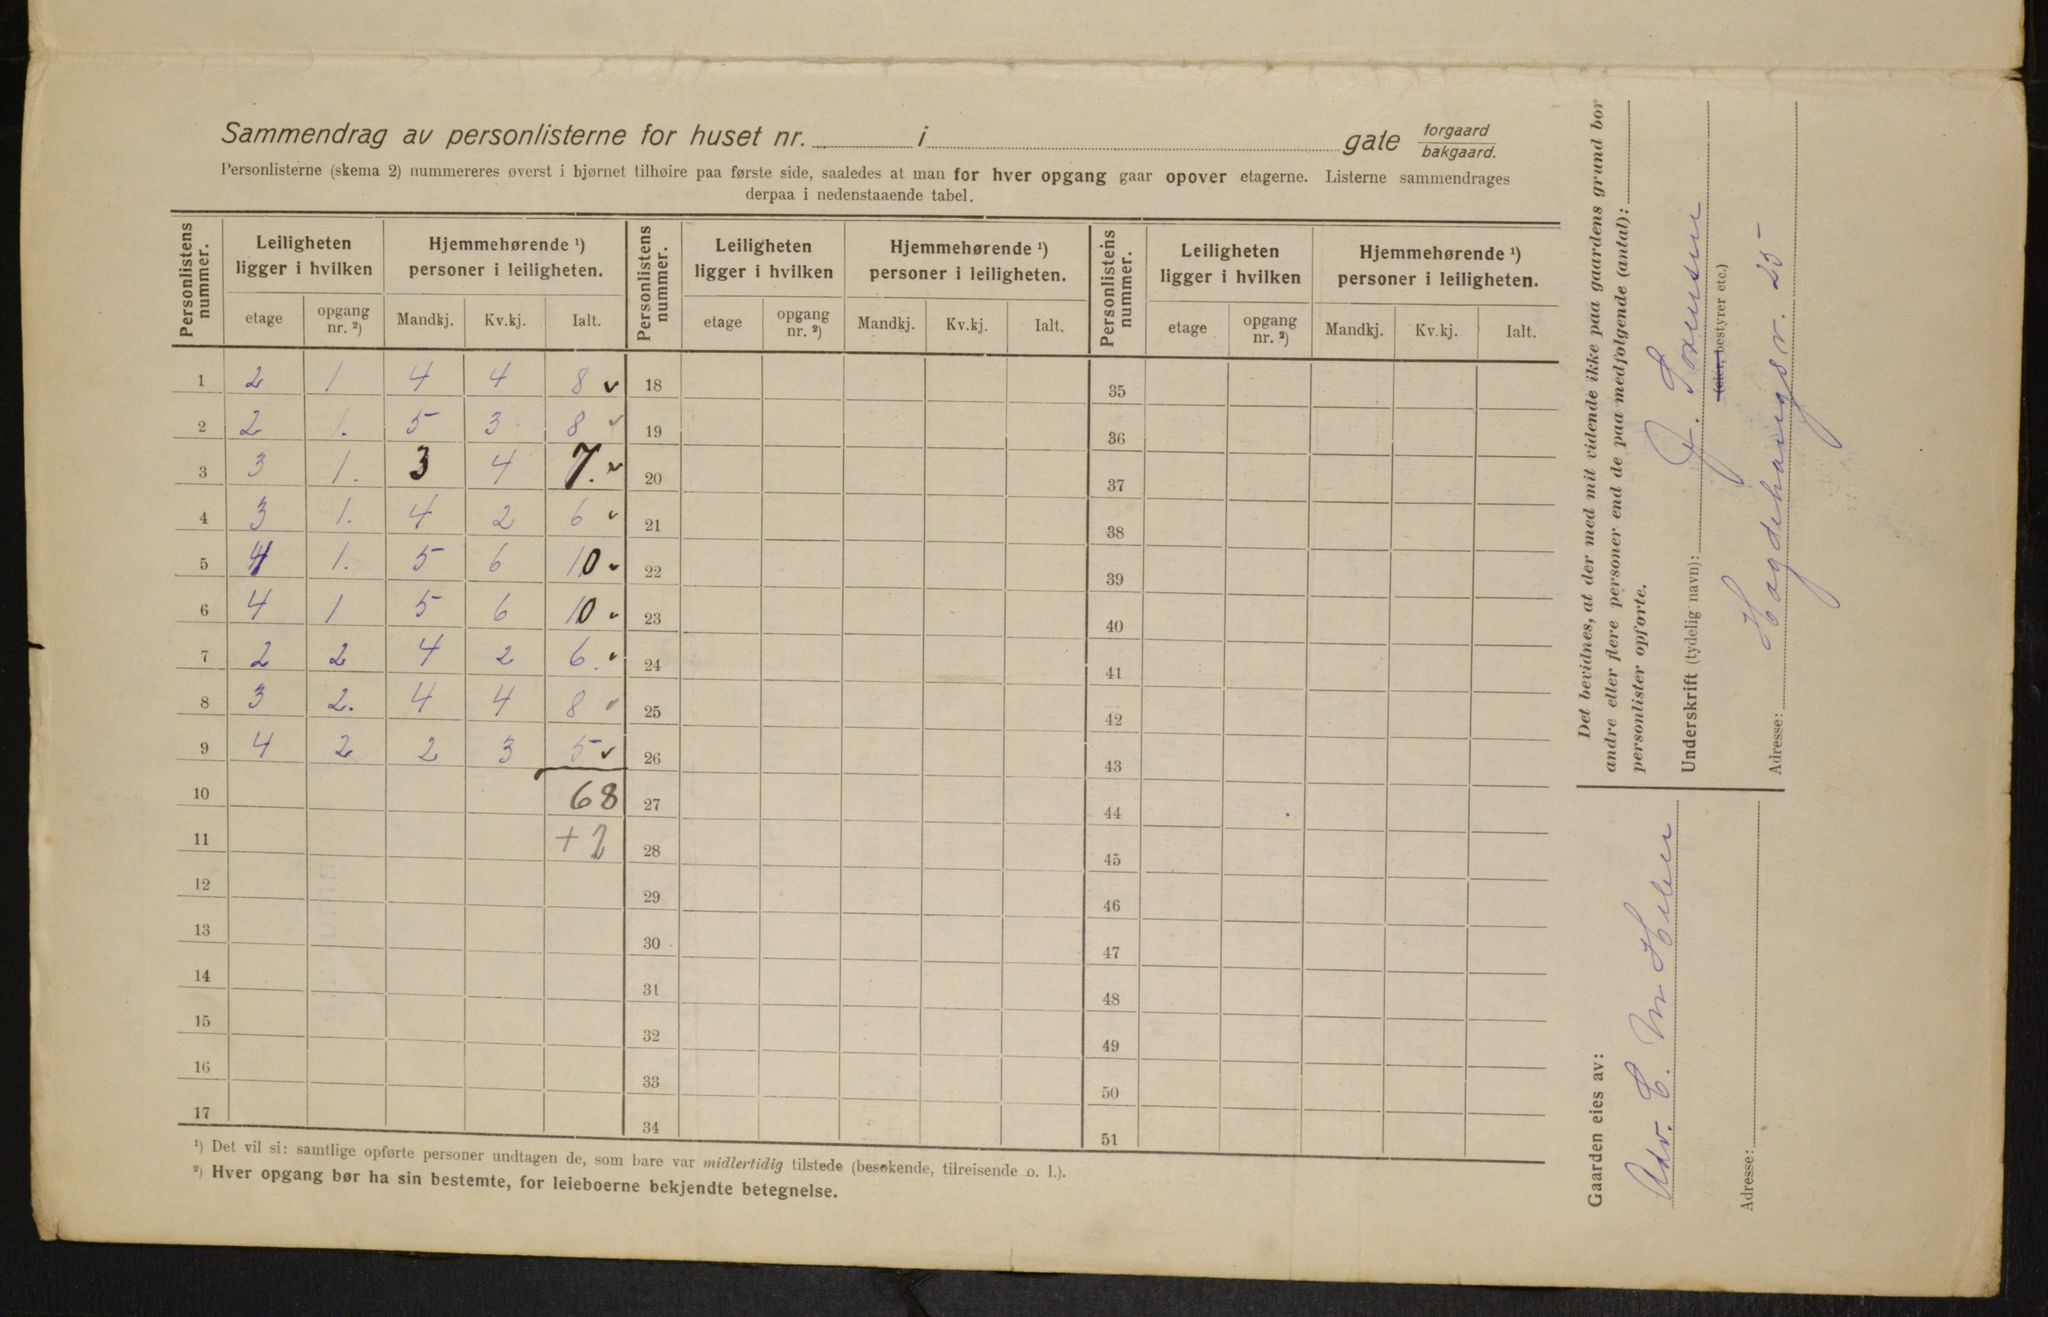 Sammendrag av personlisterne for huset nr. i gate forgaard
bakgaard.
Personlisterne (skema 2) nummereres øverst i hjørnet tilhøire paa første side, saaledes at man for hver opgang gaar opover etagerne. Listerne sammendrages
derpaa i nedenstaaende tabel.
Personlistens nummer. Leiligheten ligger i hvilken Hjemmehørende ¹) personer i leiligheten. Personlistens nummer. Leiligheten ligger i hvilken Hjemmehørende ¹) personer i leiligheten. Personlistens nummer. Leiligheten ligger i hvilken Hjemmehørende ¹) personer i leiligheten.
etage opgang nr. ²) Mandkj. Kv.kj. Ialt. etage opgang nr. ²) Mandkj. Kv.kj. Ialt. etage opgang nr. ²) Mandkj. Kv.kj. Ialt.
1 2 1 4 4 8 18 35
2 2 1. 5 3 8 19 36
3 3 1. 3 4 7. 20 37
4 3 1. 4 2 6 21 38
5 4 1. 5 6 10 22 39
6 4 1 5 6 10 23 40
7 2 2 4 2 6. 24 41
8 3 2. 4 4 8 25 42
9 4 2 2 3 5 26 43
10 68 27 44
11 + 2 28 45
12 29 46
13 30 47
14 31 48
15 32 49
16 33 50
17 34 51
¹) Det vil si: samtlige opførte personer undtagen de, som bare var midlertidig tilstede (besøkende, tilreisende o. l.).
²) Hver opgang bør ha sin bestemte, for leieboerne bekjendte betegnelse.
Det bevidnes, at der med mit vidende ikke paa gaardens grund bor
andre eller flere personer end de paa medfølgende (antal):
personlister opførte.
Underskrift (tydelig navn):
(eier, bestyrer etc.)
Adresse: Hagdehaugsv. 25
Gaarden eies av:
Adv. E.
Adresse: